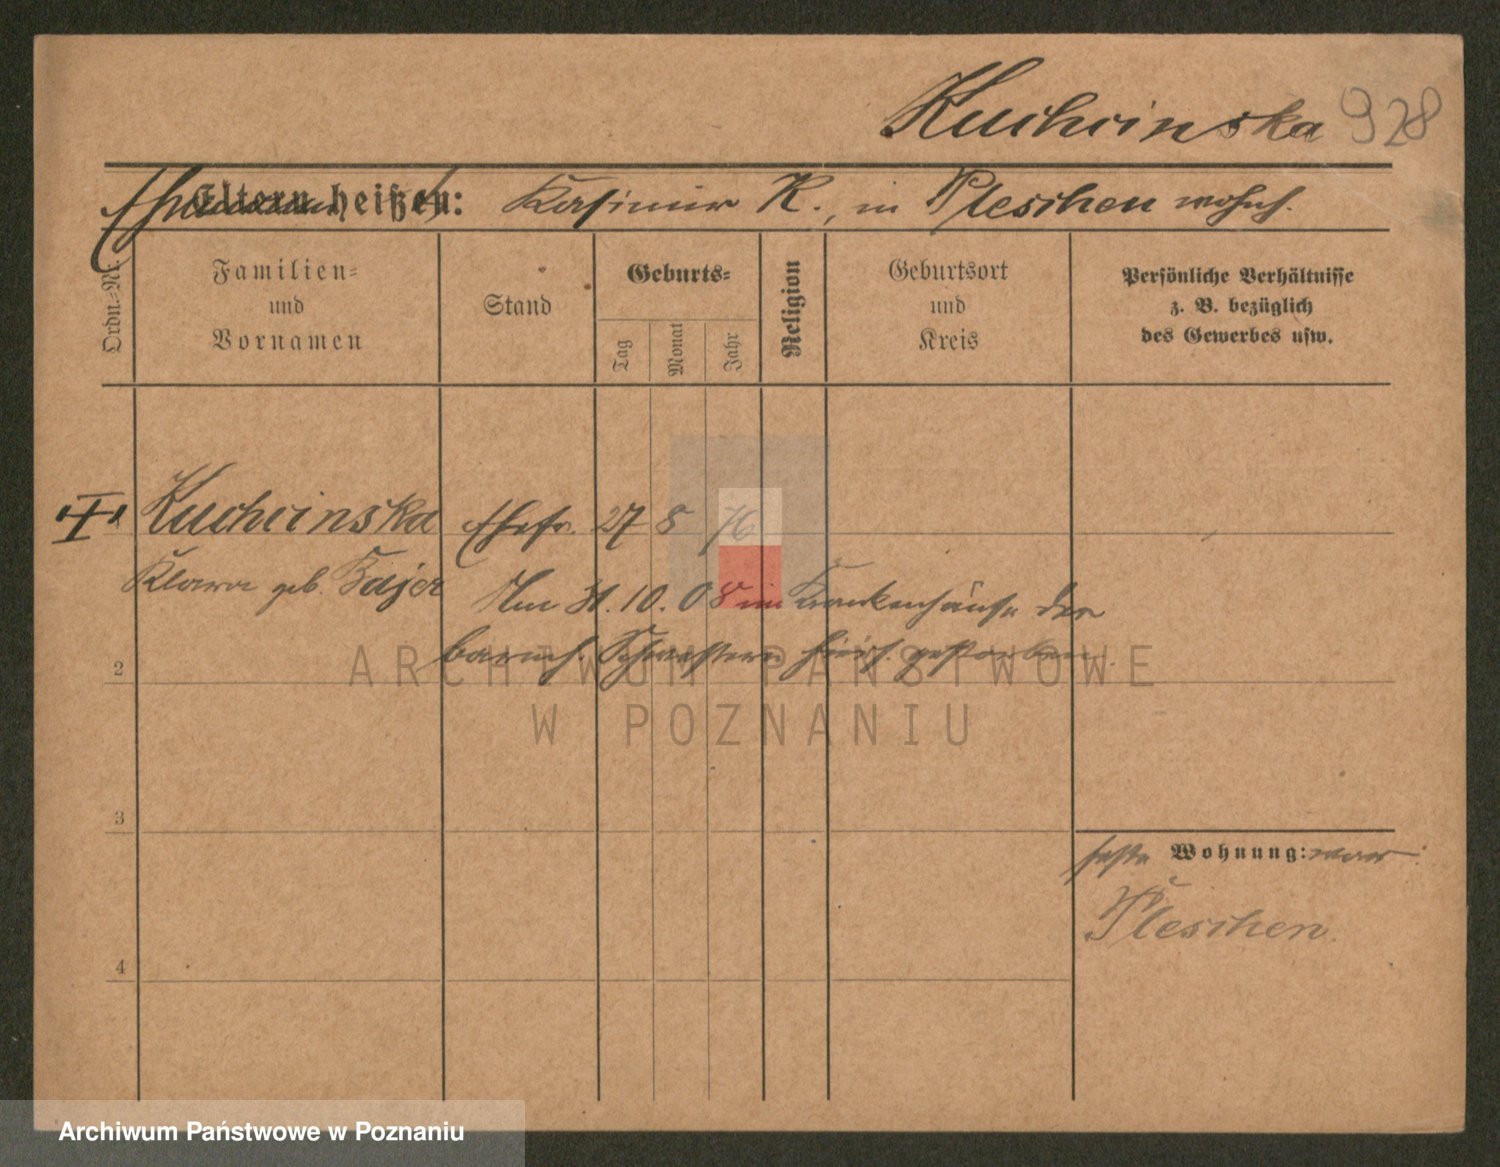 Kucharinska 928
Eltern heißen: Kasimir K., in Pleschen wohnh.
Ordn.-Nr.
Familien-
und
Vornamen
Stand
Geburts-
Tag
Monat
Jahr
Religion
Geburtsort
und
Kreis
Persönliche Verhältnisse
z. B. bezüglich
des Gewerbes usw.
Ehefr. 27 8 76
Klara geb.
Am 31.10.08 im Krankenhause der
barmh. Schwestern hiers. gestorben.
2
ARCHIWUM PAŃSTWOWE
W POZNANIU
3
Wohnung: war
Pleschen
4
Archiwum Państwowe w Poznaniu